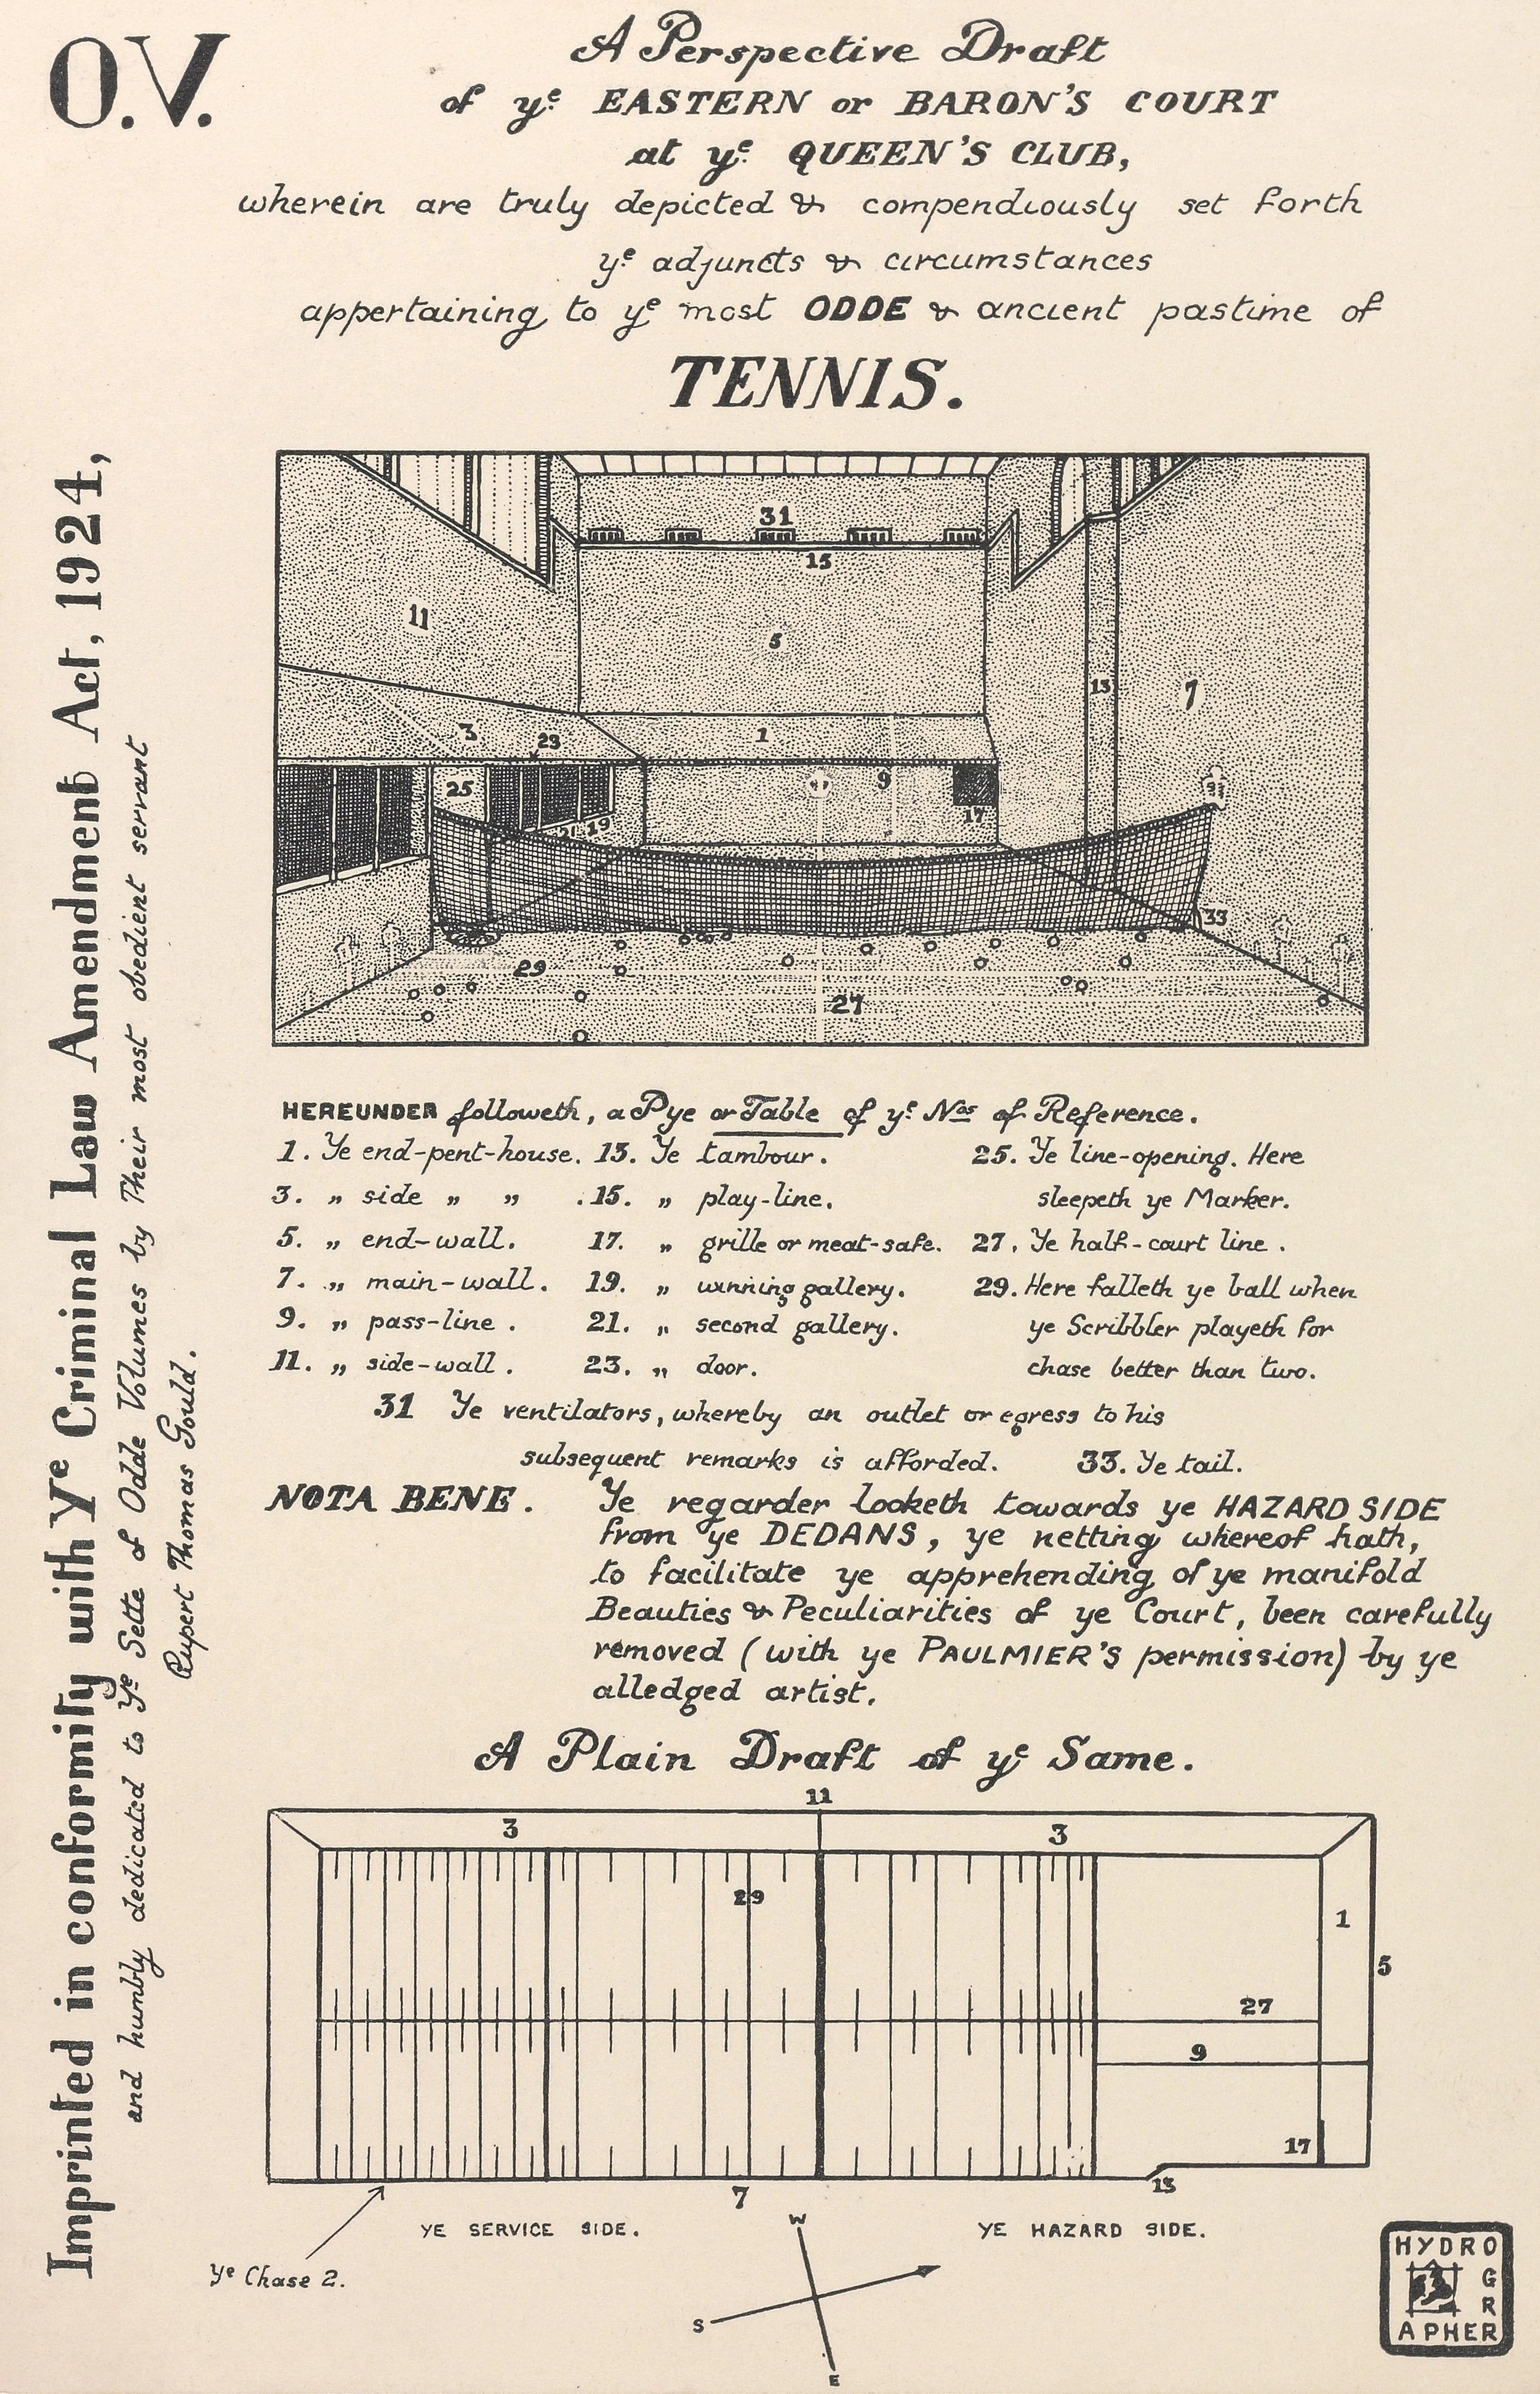 O.V.
A Perspective Draft
of yᵉ EASTERN or BARON'S COURT
at yᵉ QUEEN'S CLUB,
wherein are truly depicted & compendiously set forth
yᵉ adjuncts & circumstances
appertaining to yᵉ most ODDE & ancient pastime of
TENNIS.
31
15
11
5
13
7
3
23
1
25
9
17
21
19
33
29
27
HEREUNDER followeth, a Pye or Table of yᵉ Nᵒˢ of Reference.
1. Ye end-pent-house. 13. Ye tambour. 25. Ye line-opening. Here
3. „ side „ „ . 15. „ play-line. sleepeth ye Marker.
5. „ end-wall. 17. „ grille or meat-safe. 27. Ye half-court line.
7. „ main-wall. 19. „ winning gallery. 29. Here falleth ye ball when
9. „ pass-line. 21. „ second gallery. ye Scribbler playeth for
11. „ side-wall. 23. „ door. chase better than two.
31 Ye ventilators, whereby an outlet or egress to his
subsequent remarks is afforded. 33. Ye tail.
NOTA BENE. Ye regarder looketh towards ye HAZARD SIDE
from ye DEDANS, ye netting whereof hath,
to facilitate ye apprehending of ye manifold
Beauties & Peculiarities of ye Court, been carefully
removed (with ye PAULMIER'S permission) by ye
alledged artist.
A Plain Draft of yᵉ Same.
11
3
3
29
1
5
27
9
17
13
7
YE SERVICE SIDE.
YE HAZARD SIDE.
Yᵉ Chase 2.
W
S
E
HYDRO
G
R
APHER
Imprinted in conformity with Yᵉ Criminal Law Amendment Act, 1924,
and humbly dedicated to Yᵉ Sette of Odde Volumes by Their most obedient servant
Rupert Thomas Gould.